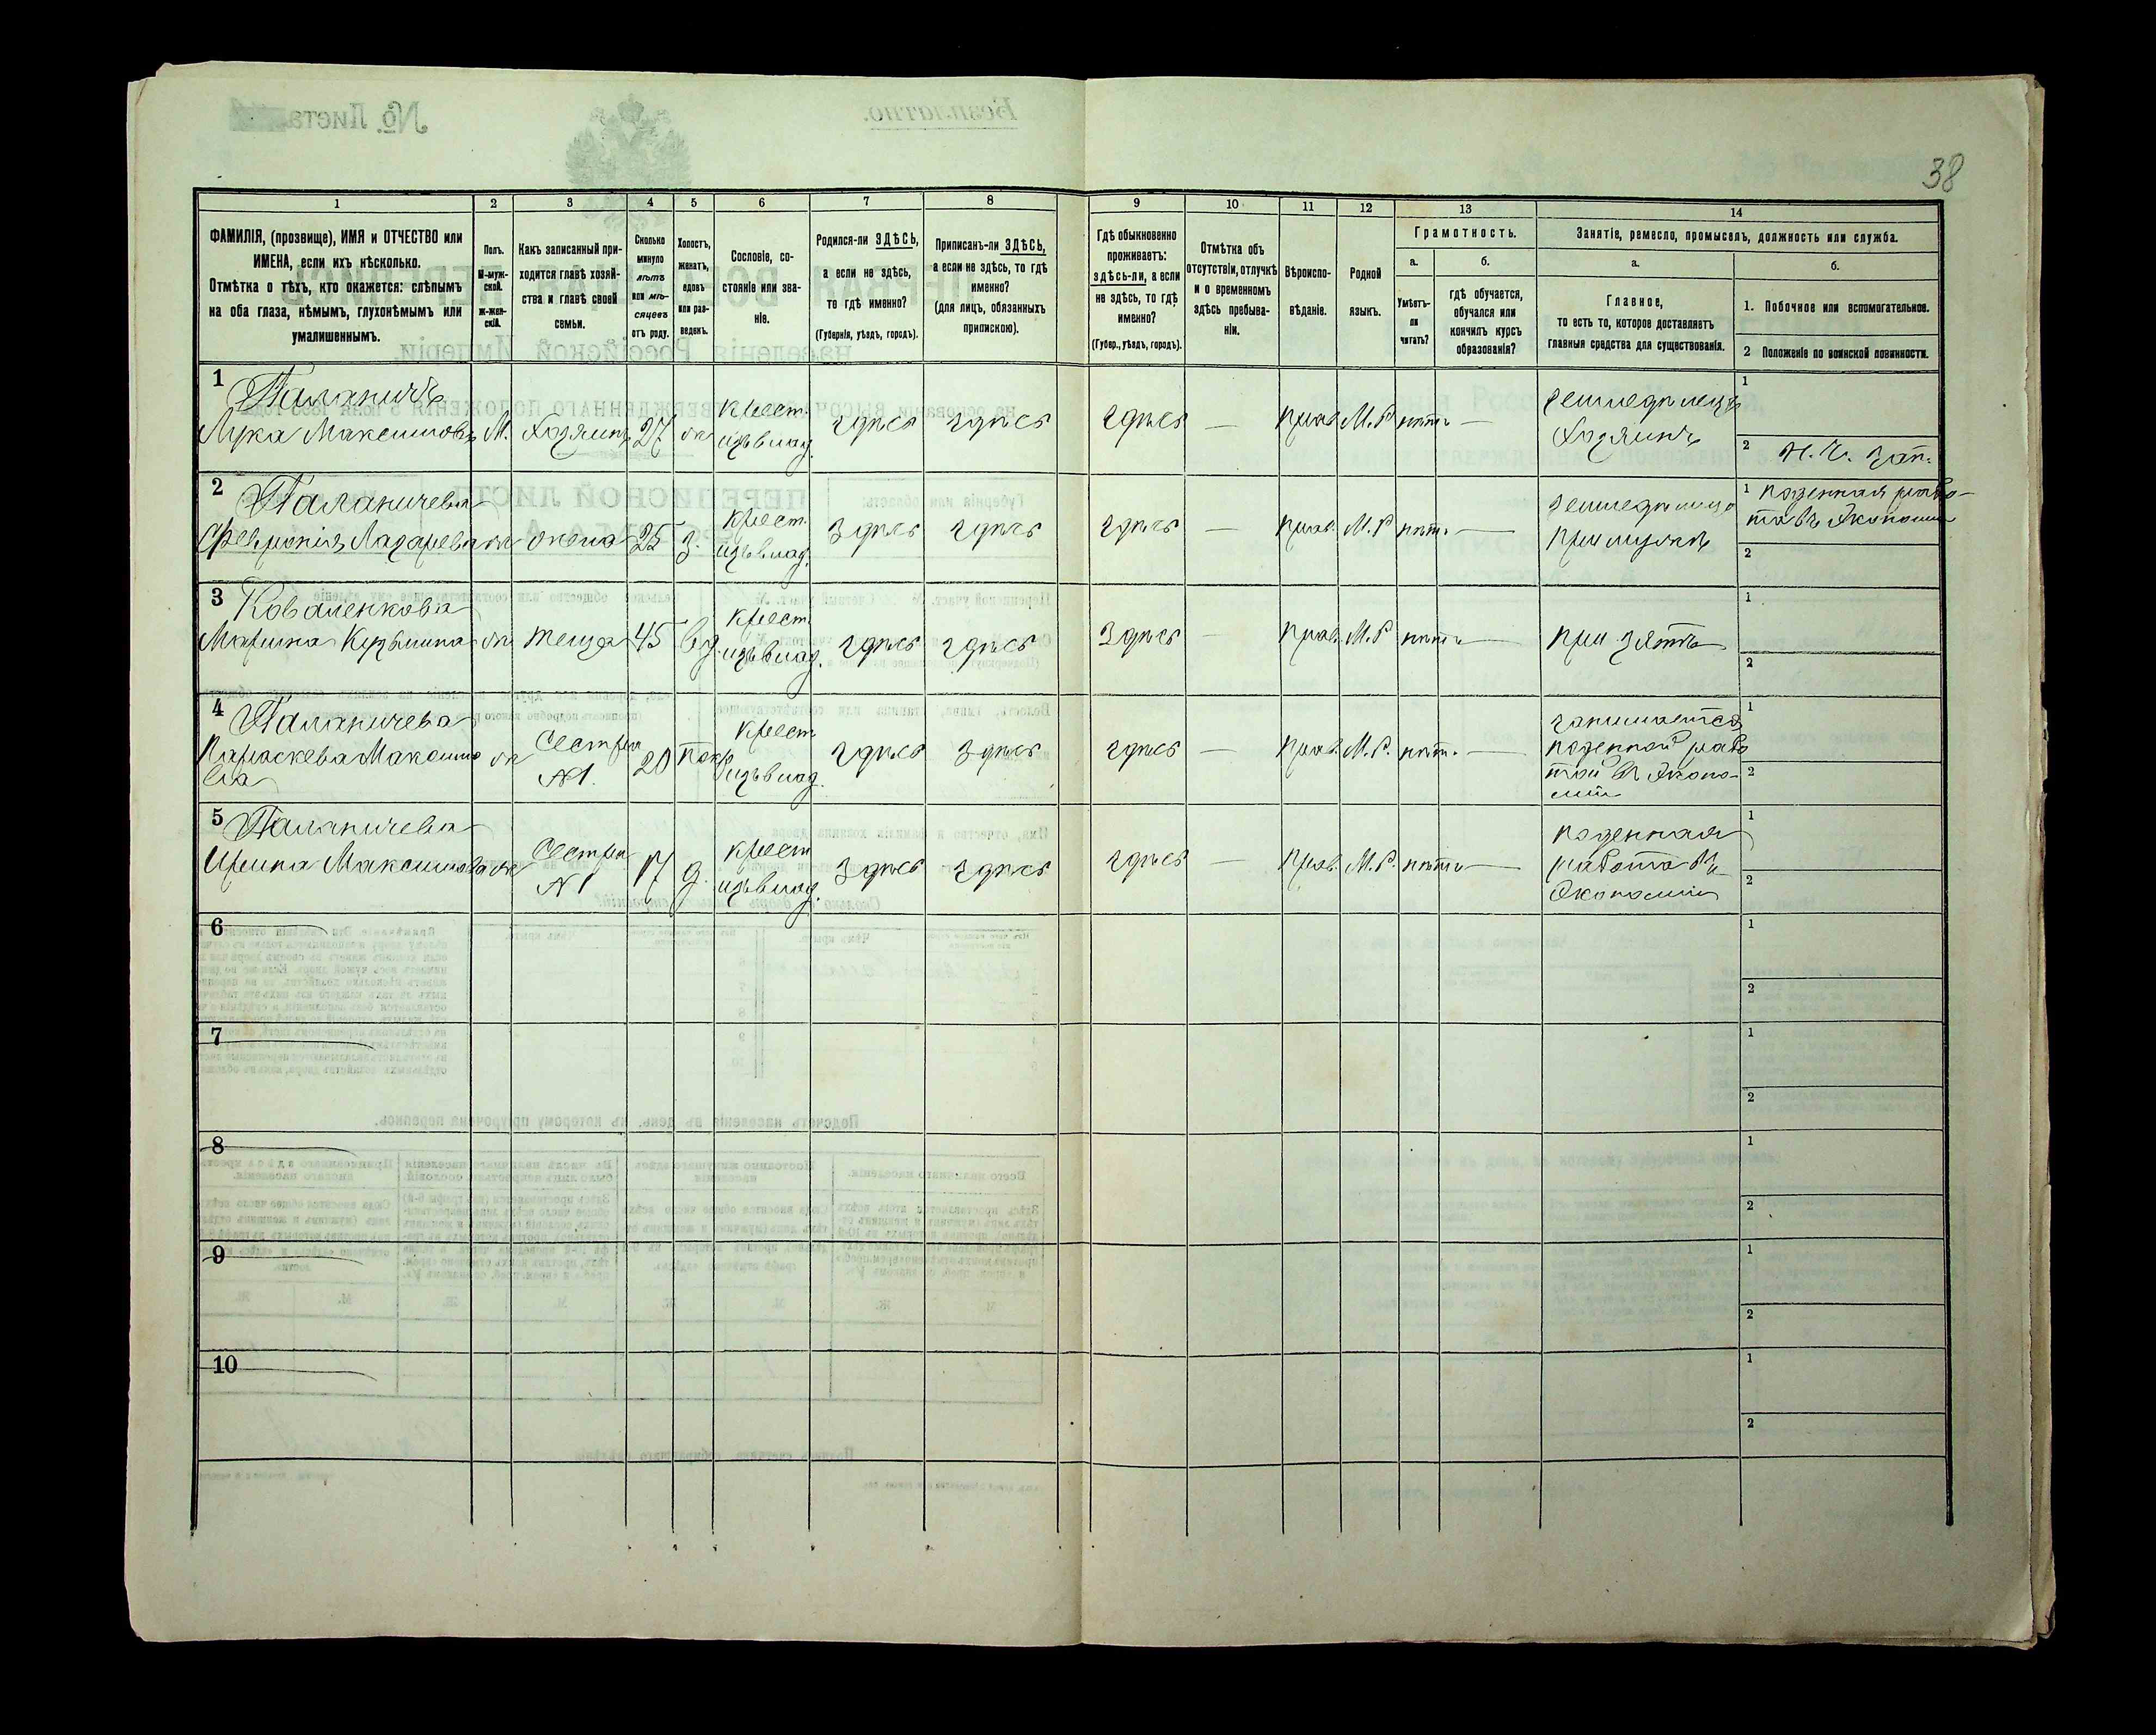 38
1 2 3 4 5 6 7 8 9 10 11 12 13 14
ФАМИЛІЯ, (прозвище), ИМЯ и ОТЧЕСТВО или
ИМЕНА, если ихъ нѣсколько.
Отмѣтка о тѣхъ, кто окажется: слѣпымъ
на оба глаза, нѣмымъ, глухонѣмымъ или
умалишеннымъ.
Полъ.
М-муж-
ской.
Ж-жен-
скій.
Какъ записанный при-
ходится главѣ хозяй-
ства и главѣ своей
семьи.
Сколько
минуло
лѣтъ
или мѣ-
сяцевъ
отъ роду.
Холостъ,
женатъ,
вдовъ
или раз-
веденъ.
Сословіе, со-
стояніе или зва-
ніе.
Родился-ли ЗДѢСЬ,
а если не здѣсь,
то гдѣ именно?
(Губернія, уѣздъ, городъ).
Приписанъ-ли ЗДѢСЬ,
а если не здѣсь, то гдѣ
именно?
(для лицъ, обязанныхъ
припискою).
Гдѣ обыкновенно
проживаетъ:
здѣсь-ли, а если
не здѣсь, то гдѣ
именно?
(Губер., уѣздъ, городъ).
Отмѣтка объ
отсутствіи, отлучкѣ
и о временномъ
здѣсь пребыва-
ніи.
Вѣроиспо-
вѣданіе.
Родной
языкъ.
Грамотность.
а.
Умѣетъ-
ли
читать?
б.
гдѣ обучается,
обучался или
кончилъ курсъ
образованія?
Занятіе, ремесло, промыселъ, должность или служба.
а.
Главное,
то есть то, которое доставляетъ
главныя средства для существованія.
б.
1. Побочное или вспомогательное.
2 Положеніе по воинской повинности.
1 Паланичъ
Лука Максимовъ М. Хозяинъ 27 ж Крест. изъ влад. здѣсь здѣсь здѣсь — прав. М.Р. нѣтъ — земледѣлецъ
Хозяинъ
1
2 Н. Ч. Зап.
2 Паланичева
Февронія Лазарева ж жена 25 з. Крест. изъ влад. здѣсь здѣсь здѣсь — прав. М.Р. нѣтъ — земледѣлица
при мужѣ
1 поденная рабо-
та въ Экономіи
2
3 Коваленкова
Марина Кузьмина ж теща 45 вд. Крест. изъ влад. здѣсь здѣсь здѣсь — прав. М.Р. нѣтъ — при зятѣ
1
2
4 Паланичева
Параскева Максимо
ва ж Сестра №1. 20 Крест. изъ влад. здѣсь здѣсь здѣсь — прав. М.Р. нѣтъ — занимается
поденной рабо
той въ Эконо-
міи
1
2
5 Паланичева
Ирина Максимова ж Сестра №1 17 д. Крест. изъ влад. здѣсь здѣсь здѣсь — прав. М.Р. нѣтъ — поденная
работа въ
Экономіи
1
2
6
1
2
7
1
2
8
1
2
9
1
2
10
1
2